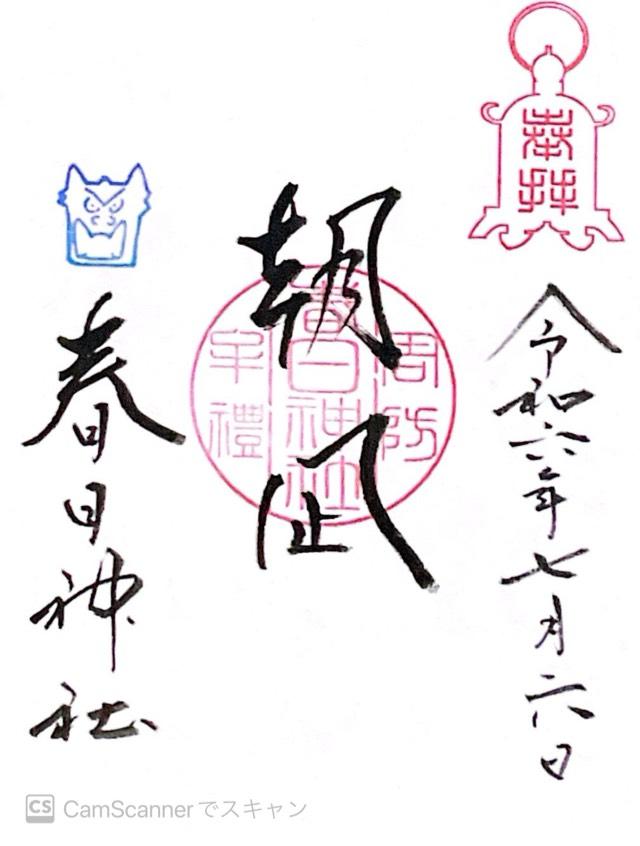 奉拝
令和六年七月六日
朝凪
周防
春日神社
牟禮
春日神社
CS CamScannerでスキャン